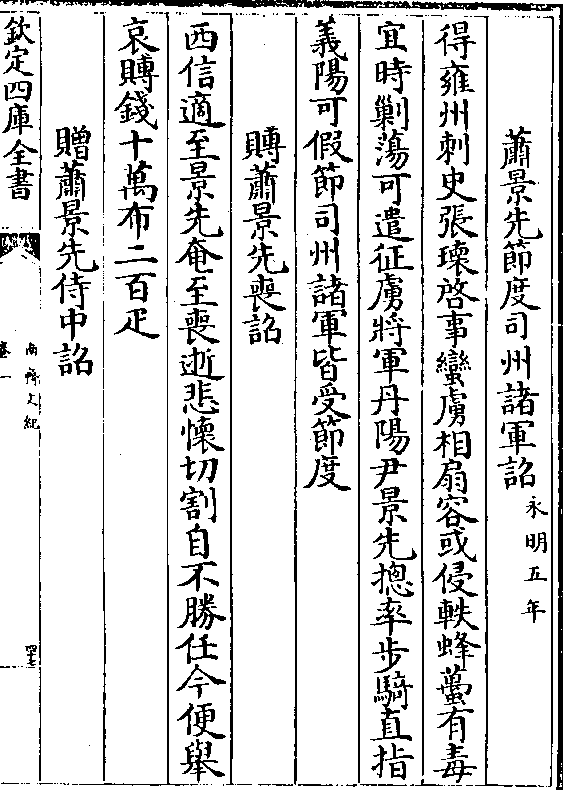 蕭景先節度司州諸軍詔永明五年
得雍州刺史張瓌啓事蠻虜相扇容或侵軼蜂蠆有毒
宜時剿蕩可遣征虜將軍丹陽尹景先摠率步騎直指
義陽可假節司州諸軍皆受節度
賻蕭景先喪詔
西信適至景先奄至喪逝悲懷切割自不勝任今便舉
哀賻錢十萬布二百疋
贈蕭景先侍中詔
欽定四庫全書
南齊文紀
卷一